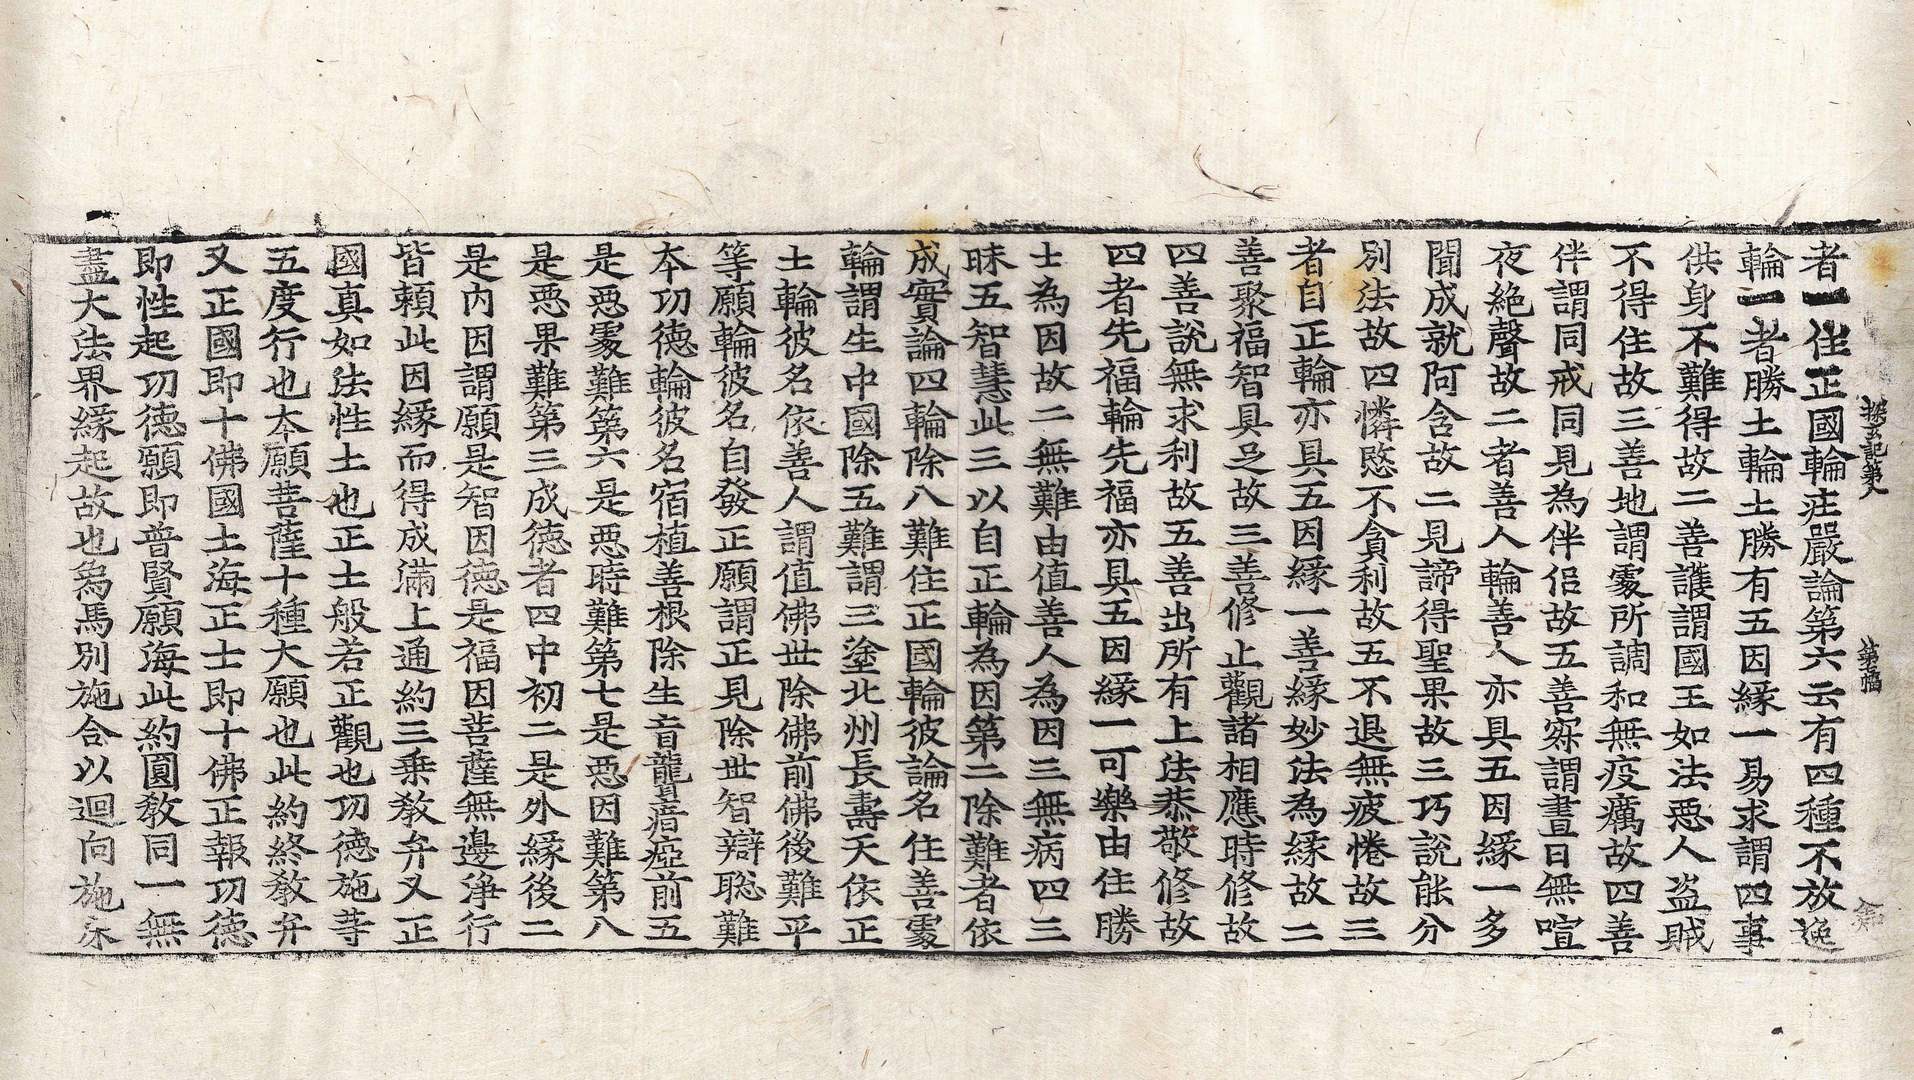 探玄記第八
第畐
者一住正國輪疰嚴論第六云有四種不放逸
輪一者勝土輪土勝有五因緣一易求謂四事
供身不難得故二善護謂國王如法惡人盗賊
不得住故三善地謂䖏所調和無疫癘故四善
伴謂同戒同見為伴侣故五善寂謂晝日無喧
夜絶聲故二者善人輪善人亦具五因緣一多
聞成就阿含故二見諦得聖果故三巧說能分
別法故四憐愍不貪利故五不退無疲惓故三
者自正輪亦具五因緣一善緣妙法為緣故二
善聚福智具足故三善修止觀諸相應時修故
四善說無求利故五善出所有上法恭敬修故
四者先福輪先福亦具五因緣一可樂由住勝
士為因故二無難由值善人為因三無病四三
昧五智慧此三以自正輪為因第二除難者依
成實論四輪除八難住正國輪彼論名住善䖏
輪謂生中國除五難謂三塗北州長壽天依正
士輪彼名依善人謂值佛世除佛前佛後難平
等願輪彼名自發正願謂正見除世智辯聡難
夲功德輪彼名宿植善根除生盲聾瘖瘂前五
是惡䖏難第六是惡時難第七是惡因難第八
是惡果難第三成德者四中初二是外緣後二
是内因謂願是智因德是福因菩薩無邊淨行
皆賴此因緣而得成滿上通約三乗教弁又正
國真如法性土也正士般若正觀也功德施等
五度行也夲願菩薩十種大願也此約終教弁
又正國即十佛國土海正士即十佛正報功德
即性起功德願即普賢願海此約圓教同一無
盡大法界緣起故也為馬別施合以迴向施床